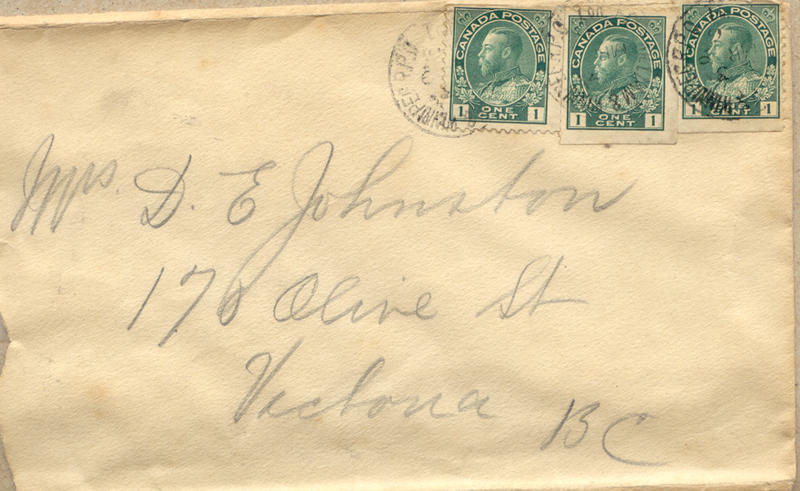 CANADA POSTAGE
1 ONE CENT 1
CANADA POSTAGE
1 ONE CENT 1
CANADA POSTAGE
1 CENT 1
Mrs. D. E Johnston
176 Olive St
Victoria
BC